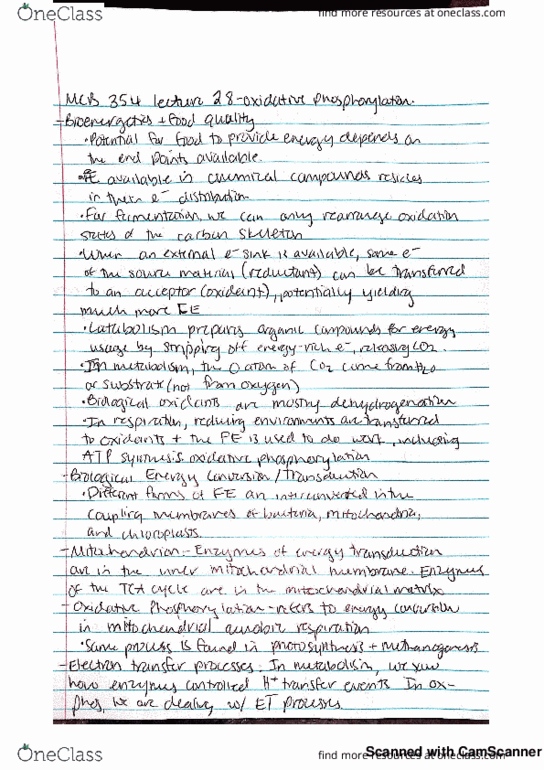 OneClass
find more resources at oneclass.com
MCB 354 lecture 28 - oxidative phosphorylation.
- Bioenergetics + food quality
• Potential for food to provide energy depends on
the end points available.
• FE available in chemical compounds resides
in their e- distribution
• For fermentation, we can only rearrange oxidation
states of the carbon skeleton
• When an external e- sink is available, some e-
of the source material (reductant) can be transferred
to an acceptor (oxidant), potentially yielding
much more FE
• Catabolism prepares organic compounds for energy
usage by stripping off energy-rich e-, releasing CO2.
• In metabolism, the O atom of CO2 come from H2O
or substrate (not from oxygen)
• Biological oxidants are mostly dehydrogenation
• In respiration, reducing environments are transferred
to oxidants + the FE is used to do work, including
ATP synthesis oxidative phosphorylation
- Biological Energy Conversion / Transduction
• Different forms of FE an interconverted in the
coupling membranes of bacteria, mitochondria,
and chloroplasts.
- Mitochondrion - Enzymes of energy transduction
are in the inner mitochondrial membrane. Enzymes
of the TCA cycle are in the mitochondrial matrix
- Oxidative Phosphorylation - refers to energy conversion
in mitochondrial aerobic respiration
• Same process is found in photosynthesis + methanogenesis
- Electron transfer processes. In metabolism, we saw
how enzymes controlled H+ transfer events In ox-
phos, we are dealing w/ ET processes
Scanned with CamScanner
OneClass
find more resources at oneclass.com